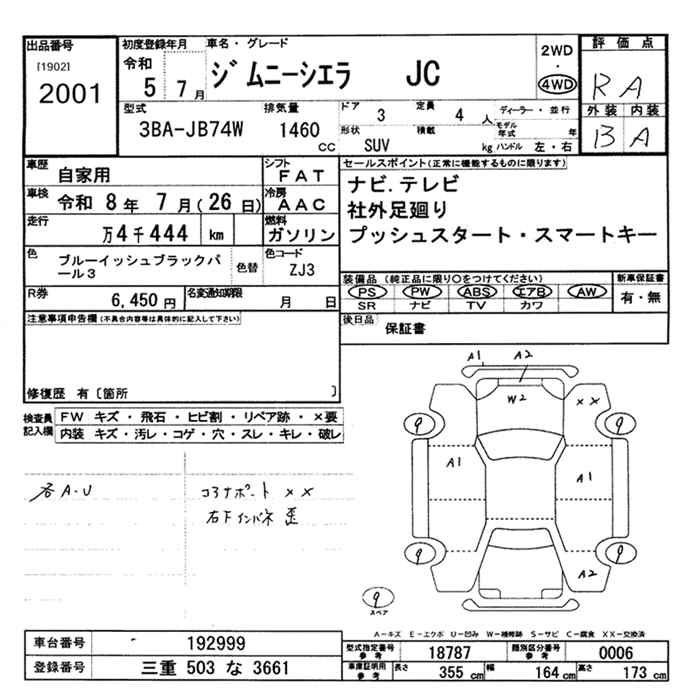 出品番号
[1902]
2001
初度登録年月
令和 5 7月
車名・グレード
ジムニーシエラ JC
2WD
・
4WD
評価点
RA
外装 内装
B A
型式
3BA-JB74W
排気量
1460 cc
ドア 3
定員 4 人
形状 SUV
積載 kg
ディーラー・並行
モデル年式 年
ハンドル 左・右
車歴 自家用
シフト FAT
車検 令和 8年 7月(26日)
冷房 AAC
走行 万4千444 km
燃料 ガソリン
色 ブルーイッシュブラックパール3
色替
色コード ZJ3
R券 6,450円
名変通知期限 月 日
セールスポイント(正常に機能するものに限ります)
ナビ.テレビ
社外足廻り
プッシュスタート・スマートキー
装備品(純正品に限り○をつけてください)
PS PW ABS エアB AW
SR ナビ TV カワ
新車保証書
有・無
後日品 保証書
注意事項申告欄(不具合内容等は具体的に記入して下さい)
修復歴 有〔箇所 〕
検査員記入欄
FW キズ・飛石・ヒビ割・リペア跡・×要
内装 キズ・汚レ・コゲ・穴・スレ・キレ・破レ
各A-U
コアサポート ××
右下インパネ 歪
A1 A2
W2
××
9 9
A1 A1
9 9
A2
9
スペア
A-キズ E-エクボ U-凹み W-補修跡 S-サビ C-腐食 XX-交換済
車台番号 192999
登録番号 三重 503 な 3661
型式指定番号参考 18787
類別区分番号参考 0006
車庫証明用参考 長さ 355 cm 幅 164 cm 高さ 173 cm